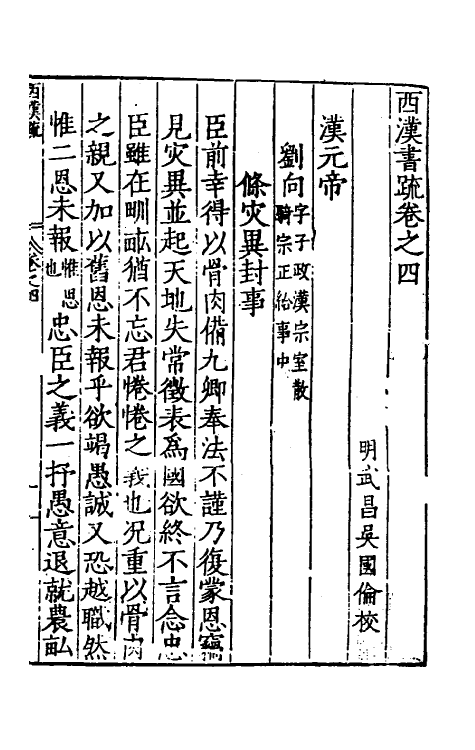 西漢書疏卷之四
明武昌吳國倫校
漢元帝
劉向字子政漢宗室散
騎宗正給事中
條灾異封事
臣前幸得以骨肉備九卿奉法不謹乃復蒙恩竊
見灾異並起天地失常徵表為國欲終不言念忠
臣雖在甽畝猶不忘君惓惓之義也況重以骨肉
之親又加以舊恩未報乎欲竭愚誠又恐越職然
惟二恩未報惟思
也忠臣之義一抒愚意退就農畝
西漢疏
卷之四